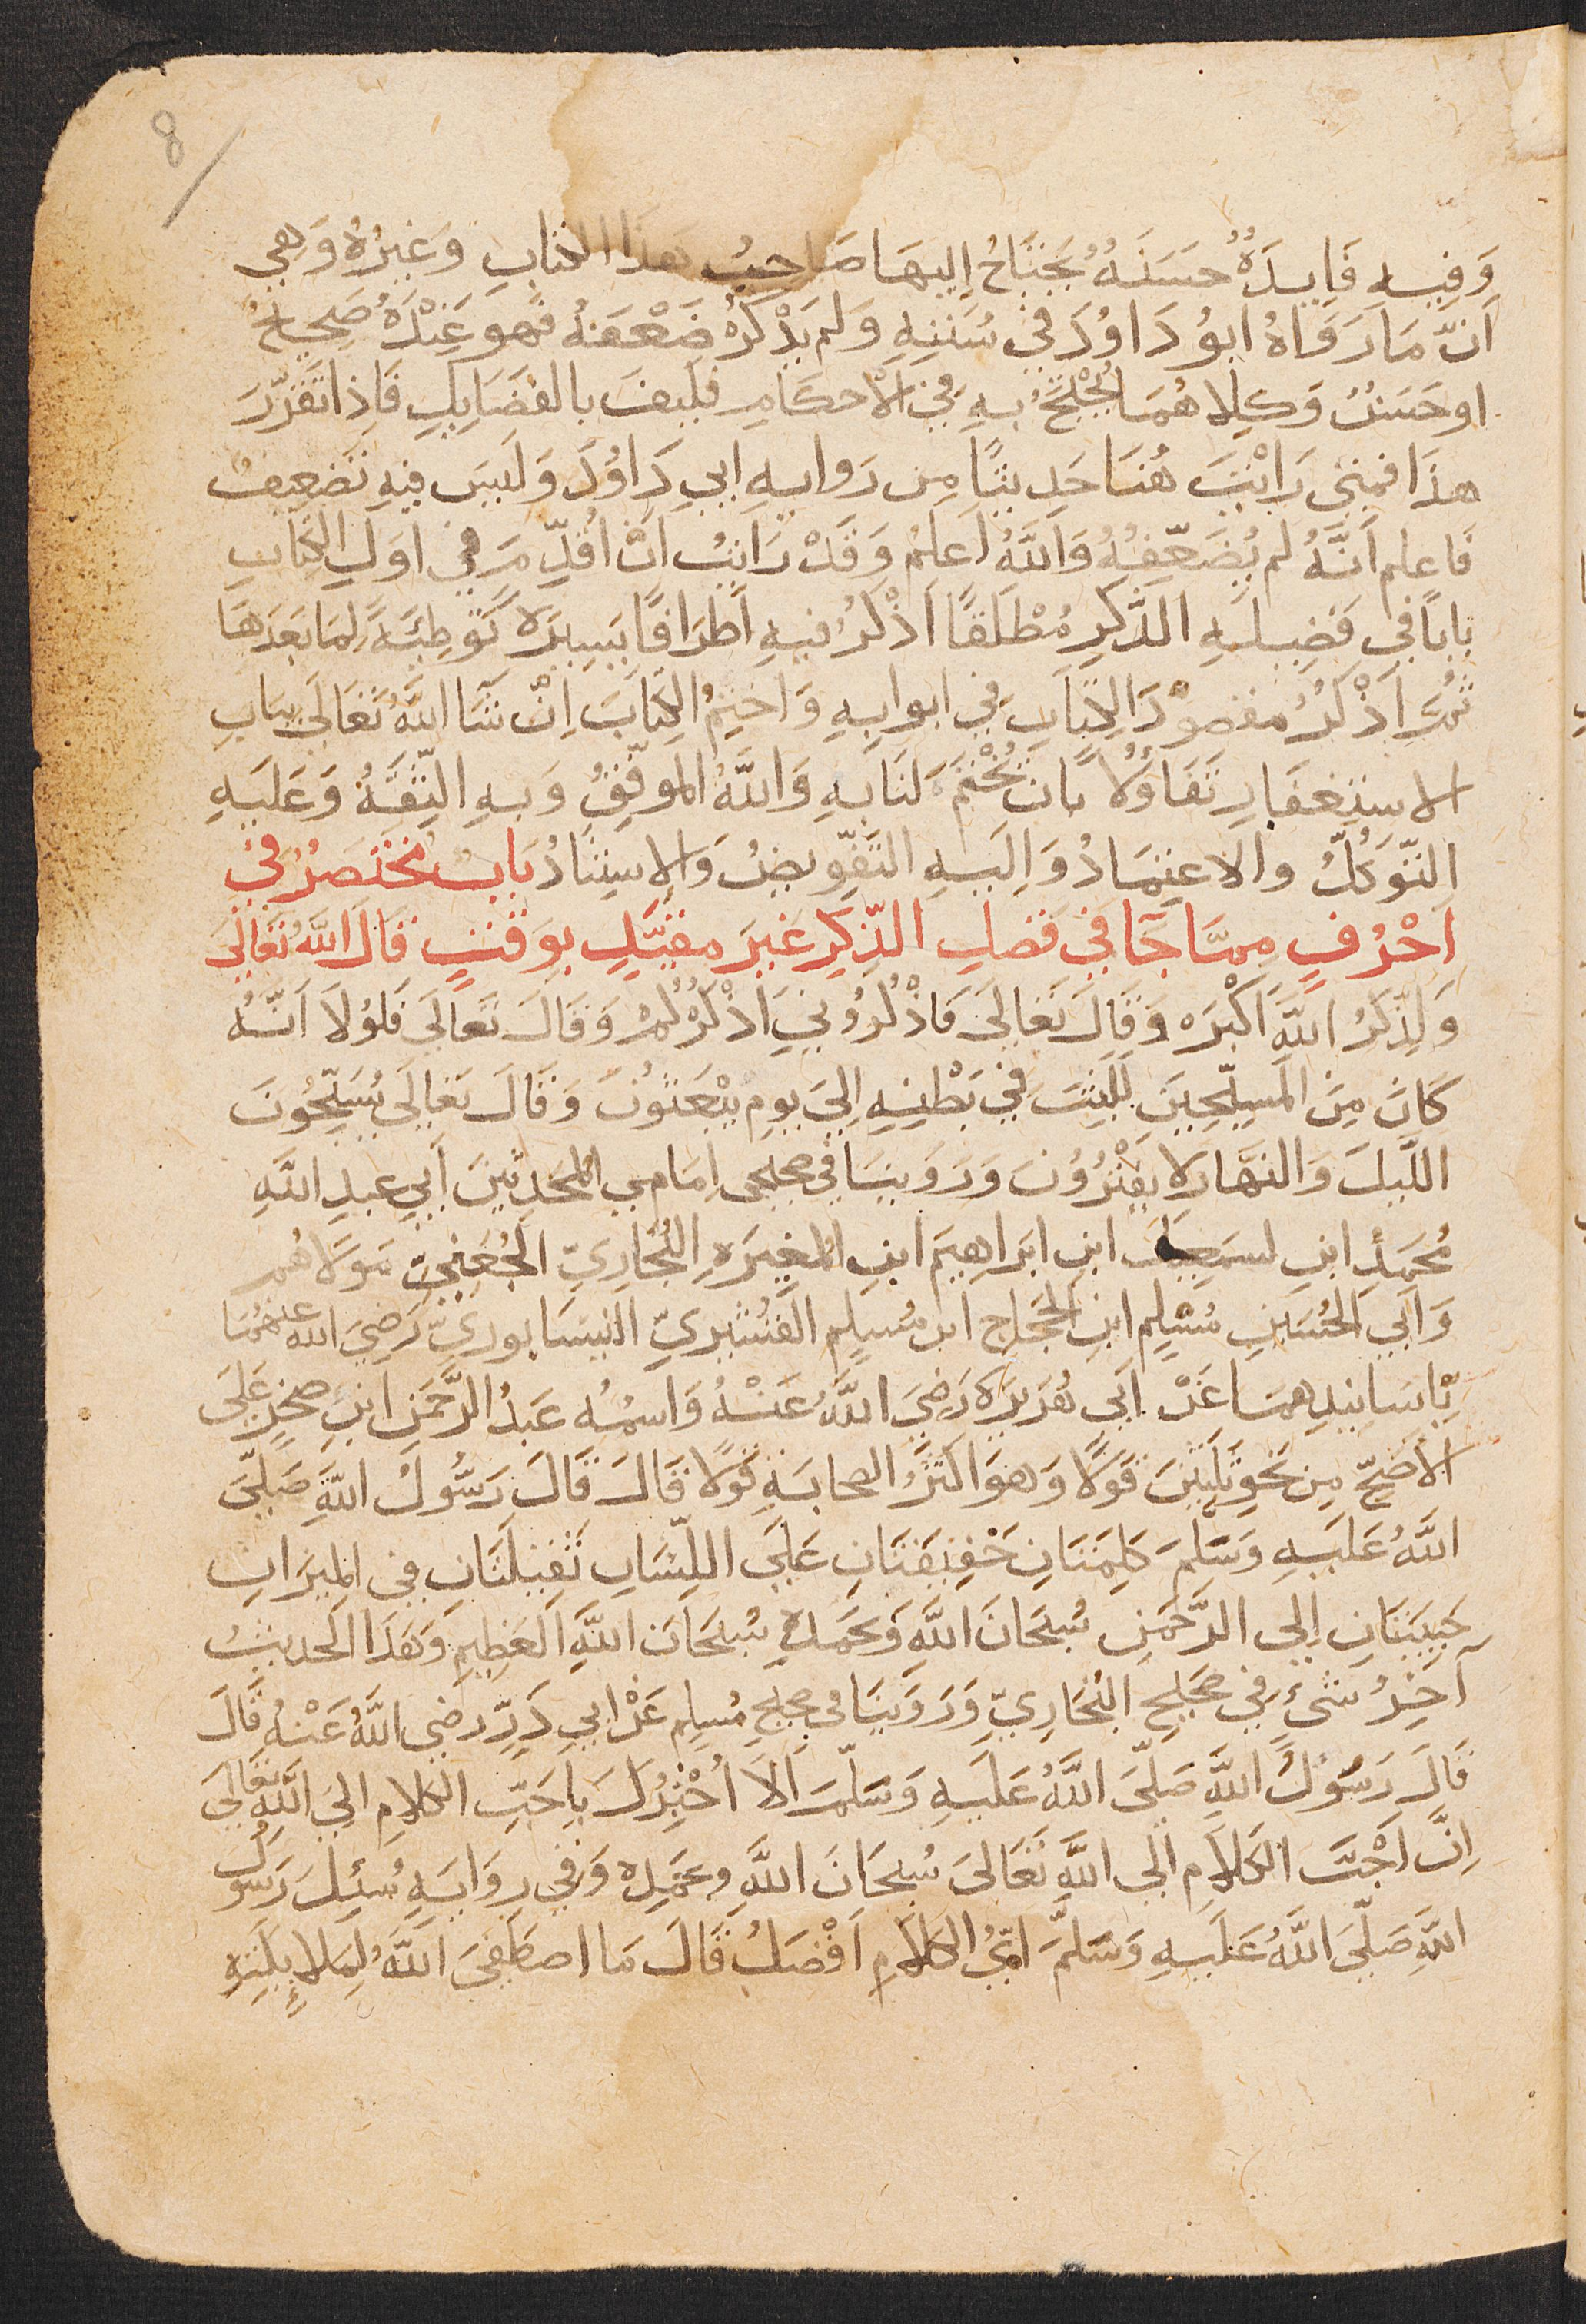 8
وَفِيهِ فَايِدَةٌ حَسَنَةٌ يَحْتَاجُ إِلَيهَا صَاحِبُ هَذَا الكتابِ وَغَيْرُهُ وَهِيَ
اَنَّ مَا رَوَاهُ ابُو دَاوُدَ فِي سُنَنِهِ وَلم يَذْكُرْ ضَعْفَهُ فَهو عِنْدَهُ صَحِيحٌ
او حَسَنٌ وَكِلاهُمَا يُحْتَجُّ بِهِ فِي الأحكَامِ فكيفَ بالفَضَايِلِ فَاِذا تَقَرَّرَ
هذَا فمتى رَاَيْتَ هُنَا حَدِيثًا مِن رَوايهِ ابي دَاوُدَ وَلَيسَ فيهِ تَضعِيفٌ
فَاعلم اَنَّهُ لم يُضَعِّفْهُ وَاللَّهُ اَعلمُ وَقَدْ رَاَيْتُ اَنْ اُقَدِّمَ فِي اوَلِ الكِتَابِ
بَابًا فِي فَضِيلَهِ الذِّكرِ مُطْلَقًا اَذْكُرُ فيهِ اَطرَافًا يَسِيرَة تَوطِئَةً لِمَا بَعدَهَا
ثُمَّ اَذْكُرُ مَقصُوْدَ الكِتَابِ فِي ابوابِهِ وَاَختِمُ الكِتَابَ اِنْ شَآ اللَّهُ تَعَالَى بِبَابِ
الاستِغفَارِ تَفَاؤُلًا بِاَن يُخْتَمَ لَنَا بِهِ وَاللَّهُ المُوَفِّقُ وَبهِ الثِّقَةُ وَعَلَيهِ
التَّوَكُّلُ والاعتِمَادُ وَاِلَيهِ التَفوِيضُ وَالاستِنَادُ بَابٌ مُخْتَصَرٌ فِي
اَحْرُفٍ مِمَّا جَآ فِي فَضلِ الذِّكرِ غَيرَ مقيَّدٍ بِوَقْتٍ قَالَ اللَّهُ تَعَالَى
وَلَذِكرُ اللَّهِ اَكْبَرُ وَقَالَ تَعَالَى فَاذْكُرُونِي اَذْكُرْكُمْ وَقَالَ تَعَالَى فَلَوْلَا اَنَّهُ
كَانَ مِنَ المُسَبِّحِينَ لَلَبِثَ فِي بَطْنِهِ اِلَى يَومِ يُبْعَثُونَ وَقَالَ تَعَالَى يُسَبِّحُونَ
اللَّيلَ وَالنهَّارَ لا يَفْتُرُوْنَ وَرَوَينَا في صحيحى اِمَامي المُحَدِّثينَ اَبِي عبدِ اللَّهِ
مُحَمَدِ ابنِ اسمعيل ابنِ ابرَاهِيمَ ابنِ المُغِيرَهِ البُخَارِيّ الجُعفِيّ مَولاهُم
وَاَبِي الحُسَينِ مُسْلِم ابنِ الحَجَاجِ ابن مُسلِم القُشَيرِيّ النيسَابوريّ رَضِيَ الله عنهُمَا
بِاَسَانيدِهمَا عَنْ اَبِي هُرَيرَه رَضِيَ اللَّهُ عَنْهُ وَاسمُه عَبدُ الرَّحمَنِ ابنِ صخرٍ عَلَى
الاَصَحِّ مِن نَحوِ ثَلَثينَ قَولًا وَهوَ اَكثَرُ الصحابَهِ قَولًا قَالَ قَالَ رَسُولُ اللَّهِ صَلَّى
اللَّهُ عَلَيهِ وَسَلمَ كَلِمَتَانِ خَفيفَتَانِ عَلَى اللِّسَانِ ثَقِيلَتَانِ فِي المِيزَانِ
حَبِيبَتَانِ اِلَى الرَّحمَنِ سُبحَانَ اللَّهِ وَبحَمدِهِ سُبحَانَ اللَّهِ العَظِيمِ وَهَذَا الحَدِيثُ
آخِرُ شَىءٍ فِي صَحِيحِ البُخَارِيِّ وَرَوَينَا فى صحِيحِ مُسلِم عَنْ ابِي ذَرٍّ رضي اللَّهُ عَنْهُ قَالَ
قَالَ رَسُولُ اللَّهِ صَلَّى اللَّهُ عَلَيهِ وَسَلّمَ اَلاَ اُخْبِرُكَ بِاحَبِّ الكلامِ اِلَى اللَّهِ تَعَالَى
اِنَّ اَحَبَّ الكَلامِ اِلَى اللَّهِ تَعَالَى سُبحَانَ اللَّهِ وبحَمدِه وَفِي رِوَايَهٍ سُئِلَ رَسُولُ
اللَّهِ صَلَّىَ اللَّهُ عَلَيهِ وَسَلَّمَ اَيُّ الكَلامِ اَفْضَلُ قَالَ مَا اصطَفَى اللَّهُ لِمَلائِكَتِهِ